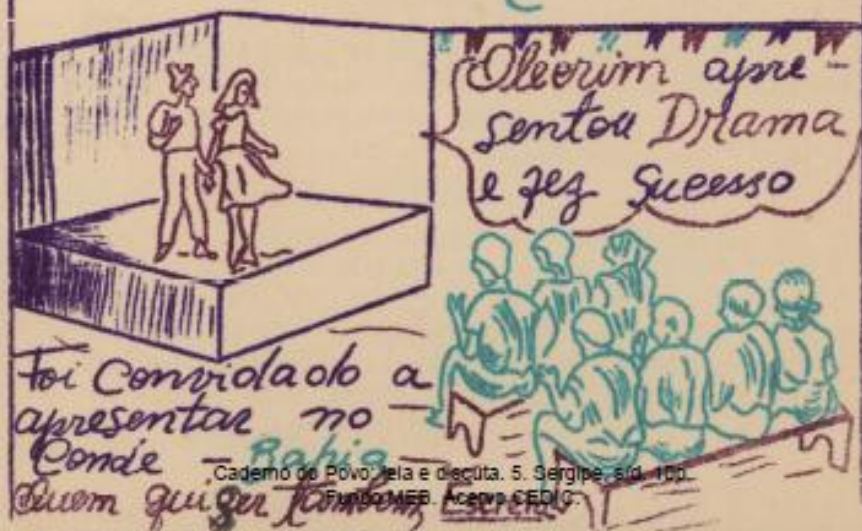 Oleerim apre-
sentou Drama
e fez sucesso
Foi Convidado a
apresentar no
Conde - Bahia
Quem quizer também
Caderno do Povo: leia e discuta. 5. Sergipe, s/d. 10p.
Fundo MEB. Acervo CEDIC.